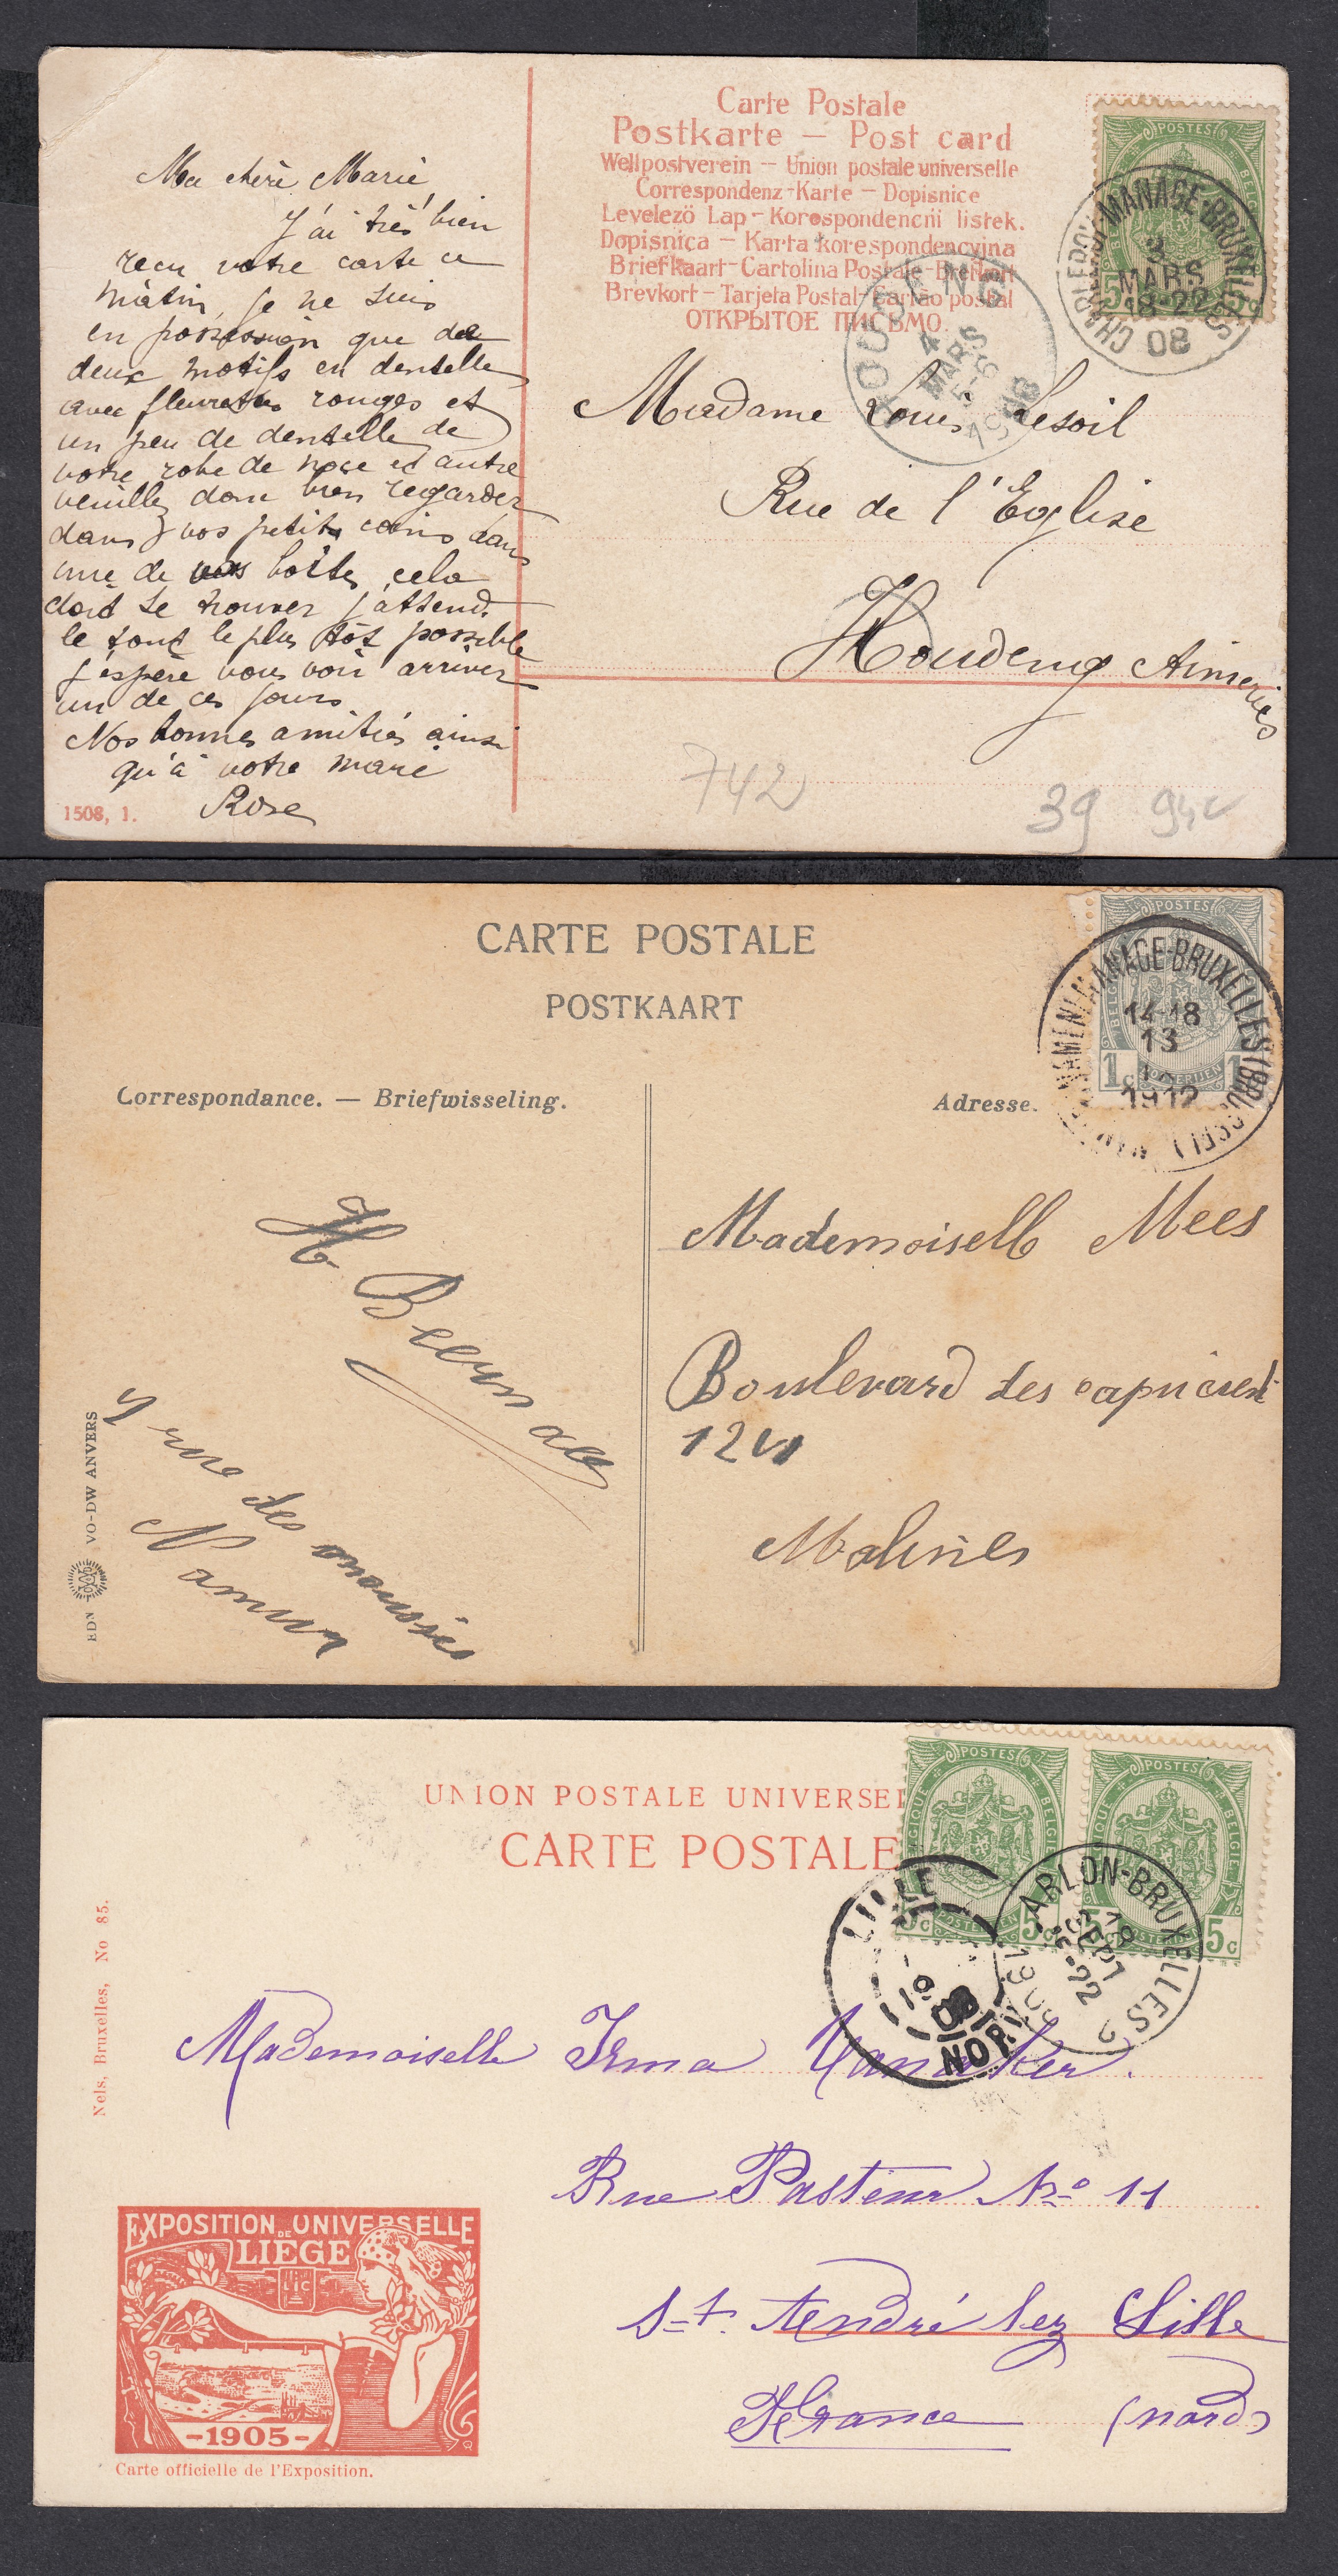 Carte Postale
Postkarte — Post card
Weltpostverein — Union postale universelle
Correspondenz-Karte — Dopisnice
Levelező Lap - Korespondencni listek.
Dopisnica — Karta korespondencyjna
Briefkaart - Cartolina Postale - Brefkort
Brevkort - Tarjeta Postal - Cartão postal
ОТКРЫТОЕ ПИСЬМО.
POSTES
5c
CHARLEROI-MANAGE-BRUXELLES
3
MARS
18-22
08
HOUDENG
4
MARS
5-6
1908
Ma chère Marie
J'ai très bien
reçu votre carte ce
matin, je ne suis
en possession que de
deux motifs en dentelle
avec fleurettes rouges et
un peu de dentelle de
votre robe de noce et autre
veuillez donc bien regarder
dans vos petits coins dans
une de vos boîtes, cela
doit se trouver j'attends
le tout le plus tôt possible
j'espère vous voir arriver
un de ces jours
Nos bonnes amitiés ainsi
qu'à votre mari
Rose
1508, 1.
Madame Louis Lesoil
Rue de l'Eglise
Houdeng Aimeries
742
39
CARTE POSTALE
POSTKAART
Correspondance. — Briefwisseling.
Adresse.
POSTES
1c 1c
MANAGE-BRUXELLES
14-18
13
1912
9 rue des
Namur
EDN VO-DW ANVERS
Mademoiselle Mees
Boulevard des capucines
124
Malines
UNION POSTALE UNIVERSEL
CARTE POSTALE
POSTES
BELGIE
5c
POSTES
BELGIE
5c
LILLE
NORD
ARLON-BRUXELLES 2
18
SEPT
Nels, Bruxelles, No 85.
Mademoiselle Irma
Rue Pasteur No 11
St André lez Lille
France (nord)
EXPOSITION UNIVERSELLE
DE
LIÈGE
-1905-
Carte officielle de l'Exposition.